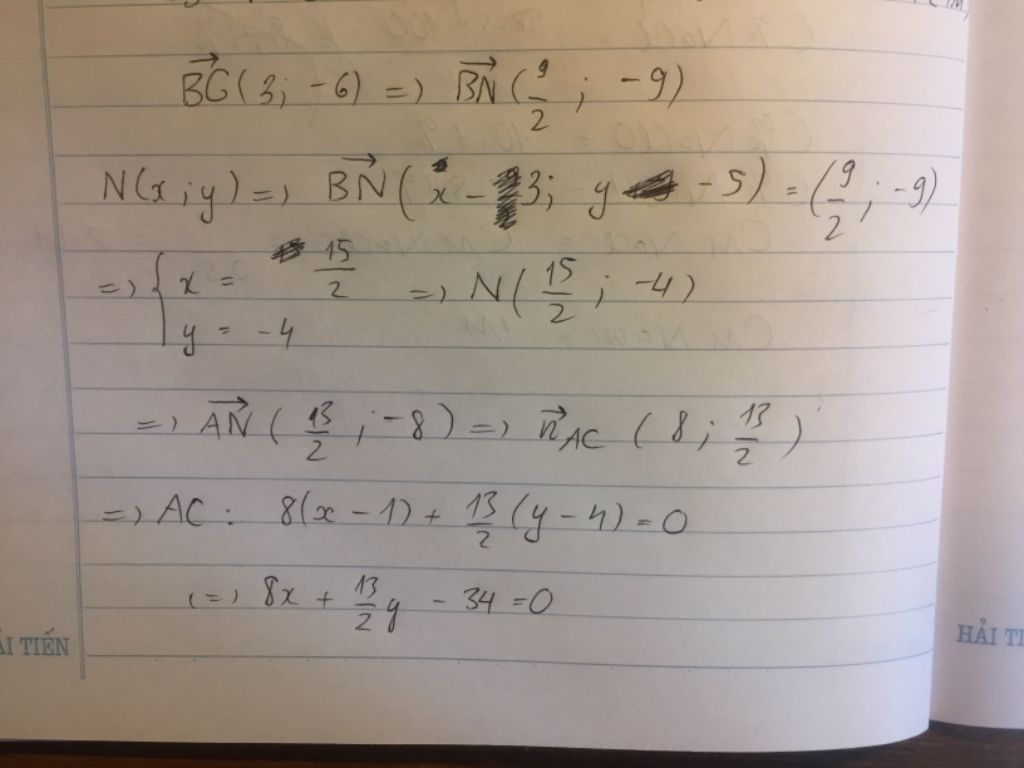 BG→(3; -6) => BN→(9/2; -9)
N(x;y) => BN→(x - 3; y - 5) = (9/2; -9)
=> { x = 15/2 => N(15/2; -4)
y = -4
=> AN→(13/2; -8) => n→AC (8; 13/2)
=> AC: 8(x - 1) + 13/2(y - 4) = 0
(=) 8x + 13/2y - 34 = 0
ẢI TIẾN
HẢI TI